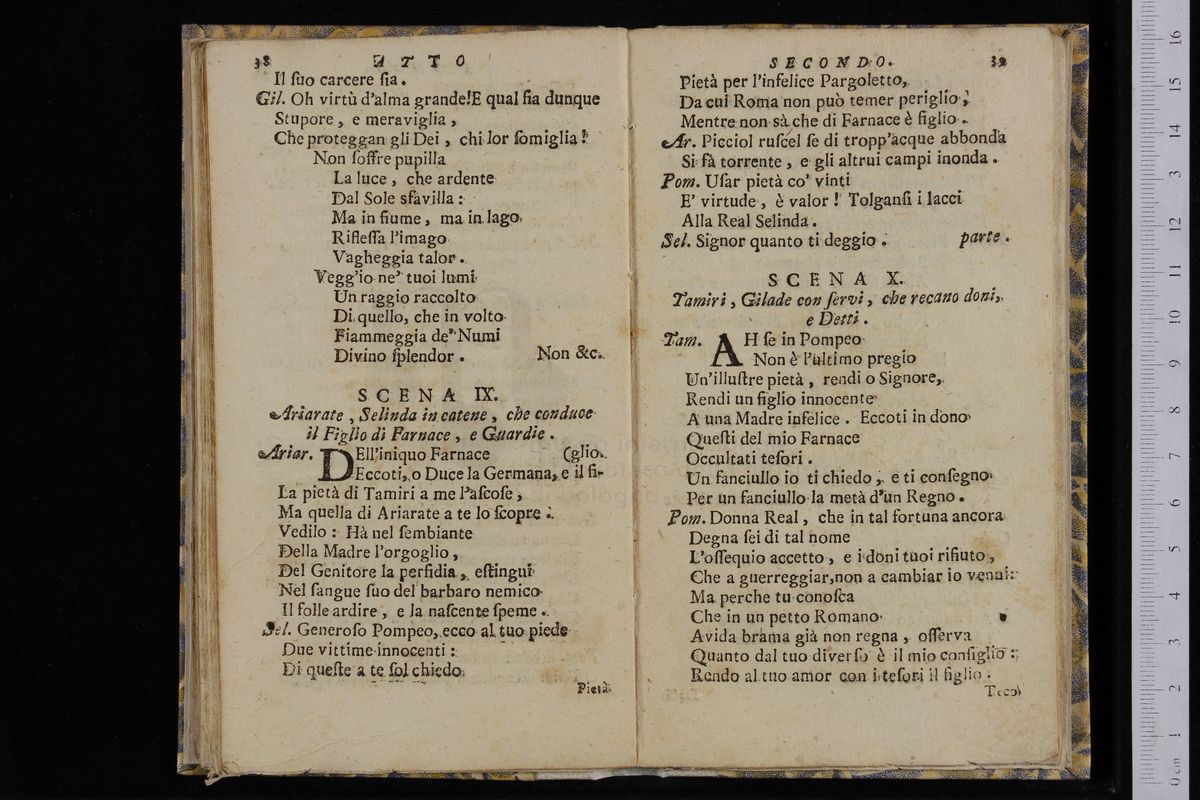 38 ATTO
Il ſuo carcere ſia.
Gil. Oh virtù d'alma grande! E qual ſia dunque
Stupore, e meraviglia,
Che proteggan gli Dei, chi lor ſomiglia!
Non ſoffre pupilla
La luce, che ardente
Dal Sole sfavilla:
Ma in fiume, ma in lago
Rifleſſa l'imago
Vagheggia talor.
Vegg'io ne' tuoi lumi
Un raggio raccolto
Di quello, che in volto
Fiammeggia de' Numi
Divino ſplendor. Non &c.
SCENA IX.
Ariarate, Selinda in catene, che conduce
il Figlio di Farnace, e Guardie.
Ariar. DEll'iniquo Farnace (glio.
Eccoti, o Duce la Germana, e il fi-
La pietà di Tamiri a me l'aſcoſe,
Ma quella di Ariarate a te lo ſcopre.
Vedilo: Hà nel ſembiante
Della Madre l'orgoglio,
Del Genitore la perfidia, eſtingui
Nel ſangue ſuo del barbaro nemico
Il folle ardire, e la naſcente ſpeme.
Sel. Generoſo Pompeo, ecco al tuo piede
Due vittime innocenti:
Di queſte a te ſol chiedo
Pietà
SECONDO. 39
Pietà per l'infelice Pargoletto,
Da cui Roma non può temer periglio;
Mentre non sà che di Farnace è figlio.
Ar. Picciol ruſcel ſe di tropp'acque abbonda
Si fà torrente, e gli altrui campi inonda.
Pom. Uſar pietà co' vinti
E' virtude, è valor! Tolganſi i lacci
Alla Real Selinda.
Sel. Signor quanto ti deggio. parte.
SCENA X.
Tamiri, Gilade con ſervi, che recano doni,
e Detti.
Tam. AH ſe in Pompeo
Non è l'ultimo pregio
Un'illuſtre pietà, rendi o Signore,
Rendi un figlio innocente
A una Madre infelice. Eccoti in dono
Queſti del mio Farnace
Occultati teſori.
Un fanciullo io ti chiedo, e ti conſegno
Per un fanciullo la metà d'un Regno.
Pom. Donna Real, che in tal fortuna ancora
Degna ſei di tal nome
L'oſſequio accetto, e i doni tuoi rifiuto,
Che a guerreggiar, non a cambiar io venni:
Ma perche tu conoſca
Che in un petto Romano
Avida brama già non regna, oſſerva
Quanto dal tuo diverſo è il mio conſiglio:
Rendo al tuo amor con i teſori il figlio.
Teco